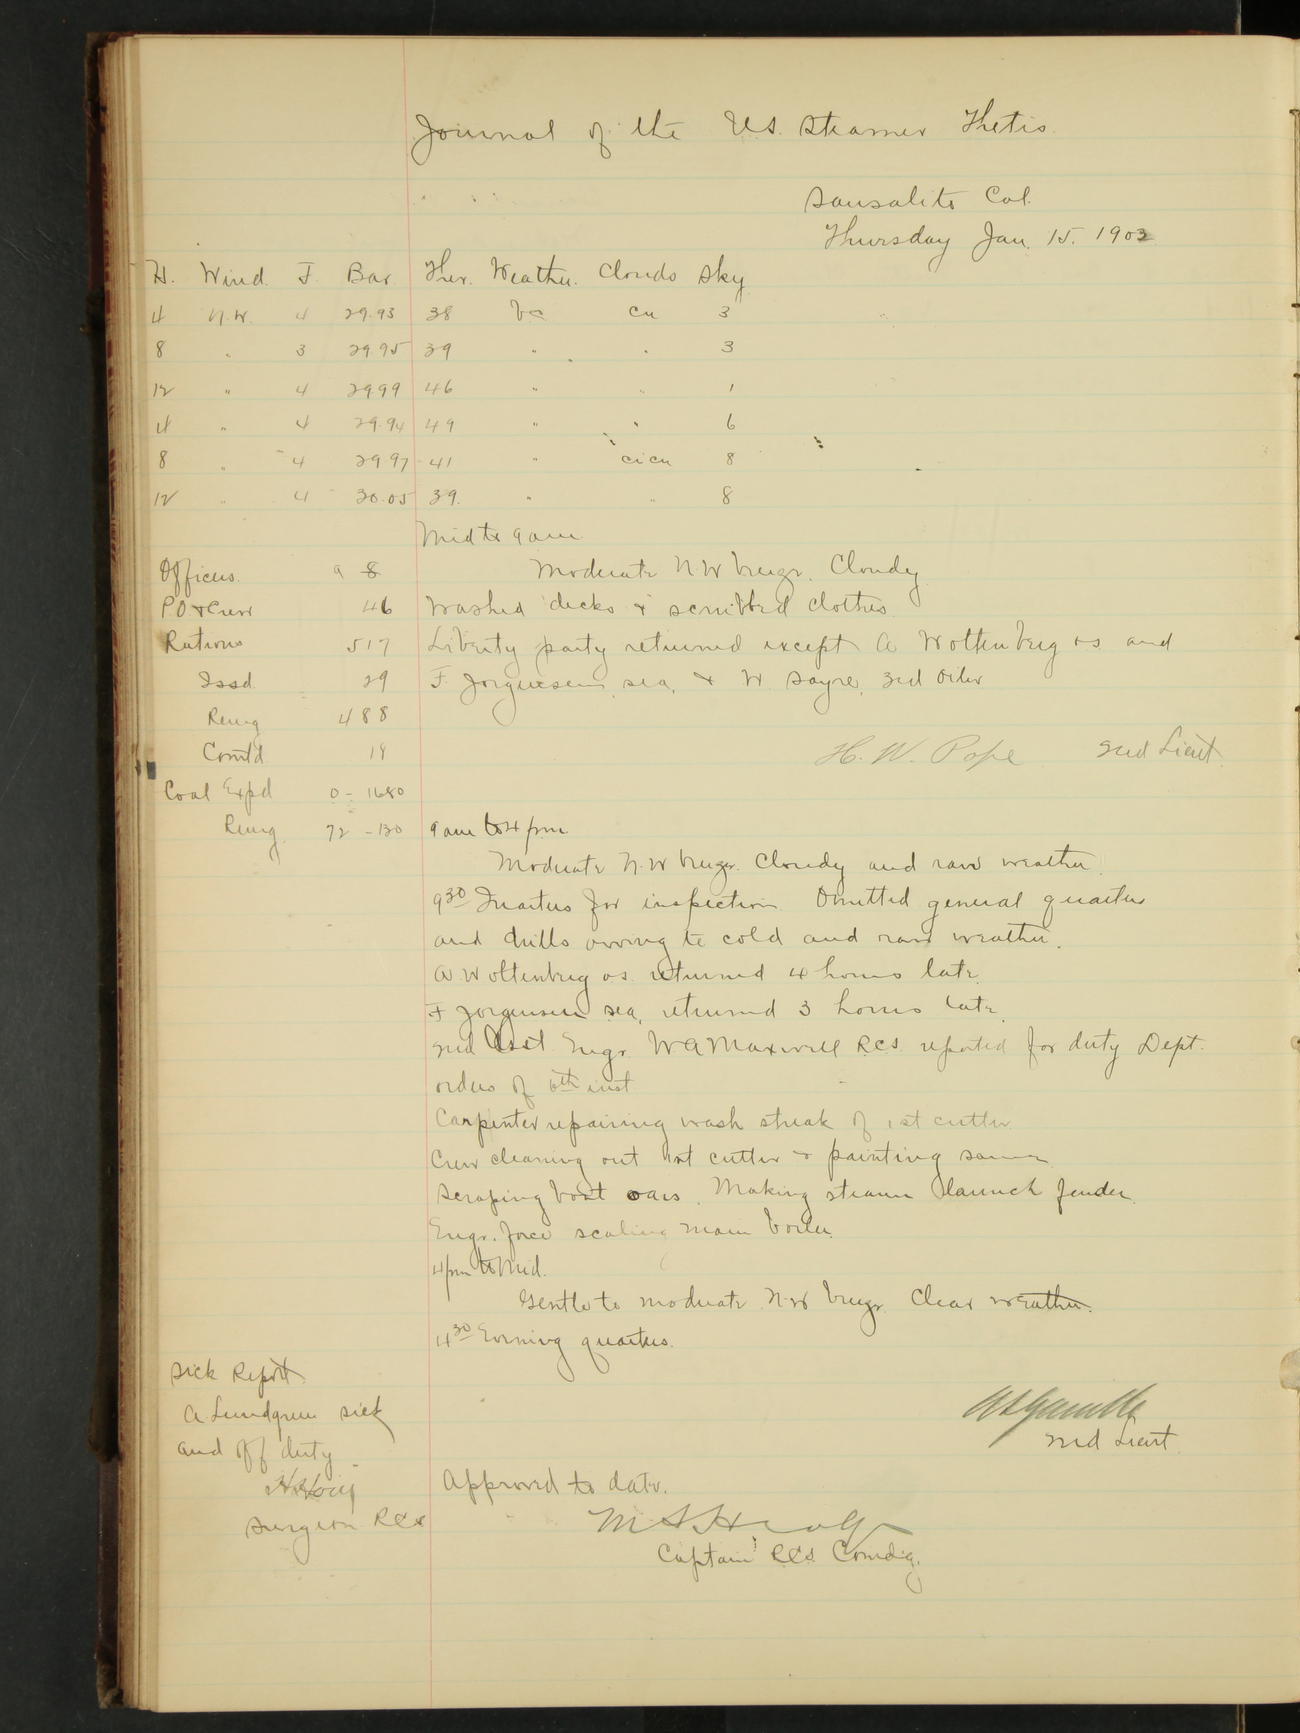 Journal of the U.S. Steamer Thetis
Sausalito Cal.
Thursday Jan. 15. 1903
H. Wind. F. Bar Ther. Weather. Clouds Sky
4 N.W. 4 29.93 38 bc cu 3
8 " 3 29.95 39 " " 3
12 " 4 29.99 46 " " 1
4 " 4 29.94 49 " " 6
8 " 4 29.97 41 " cicu 8
12 " 4 30.05 39. " " 8
Mid to 9 am
Officers. 9 8 Moderate N.W breeze. Cloudy
P.O. & Crew 46 Washed decks & scrubbed clothes
Rations 517 Liberty party returned except A Woltenberg os and
Issd 29 F. Jorguesen, sea, & W. Sayre, 3rd Oiler
Remg 488
Comtd 19 H. W. Pope 2nd Lieut.
Coal Expd 0 - 1680
Remg 72 - 130 9 am to 4 pm
Moderate N.W breeze. Cloudy and raw weather.
9 30 Quarters for inspection Omitted general quarters
and drills owing to cold and raw weather.
A Woltenberg os. returned 4 hours late.
F Jorgensen sea, returned 3 hours late.
2nd Asst Engr. W A Maxwell RCS reported for duty Dept.
orders of 6th inst
Carpenter repairing wash streak of 1st cutter
Crew cleaning out 1st cutter & painting same
Scraping boat oars. Making steam launch fender.
Engr. force scaling main boiler.
4 pm to Mid.
Gentle to moderate N.W breeze Clear weather.
4 30 Evening quarters.
Sick Report
A. Lundgren sick
and off duty
Surgeon RCS
W S Gamble
2nd Lieut.
Approved to date.
Captain RCS. Comdg.